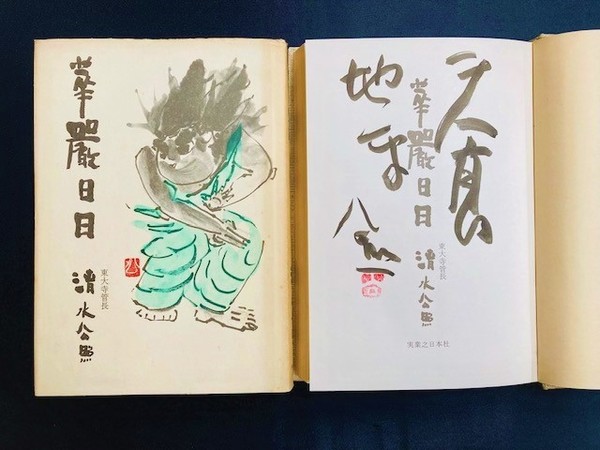 華嚴日日
東大寺管長
清水公照
地平
公照
華嚴日日
東大寺管長
清水公照
実業之日本社